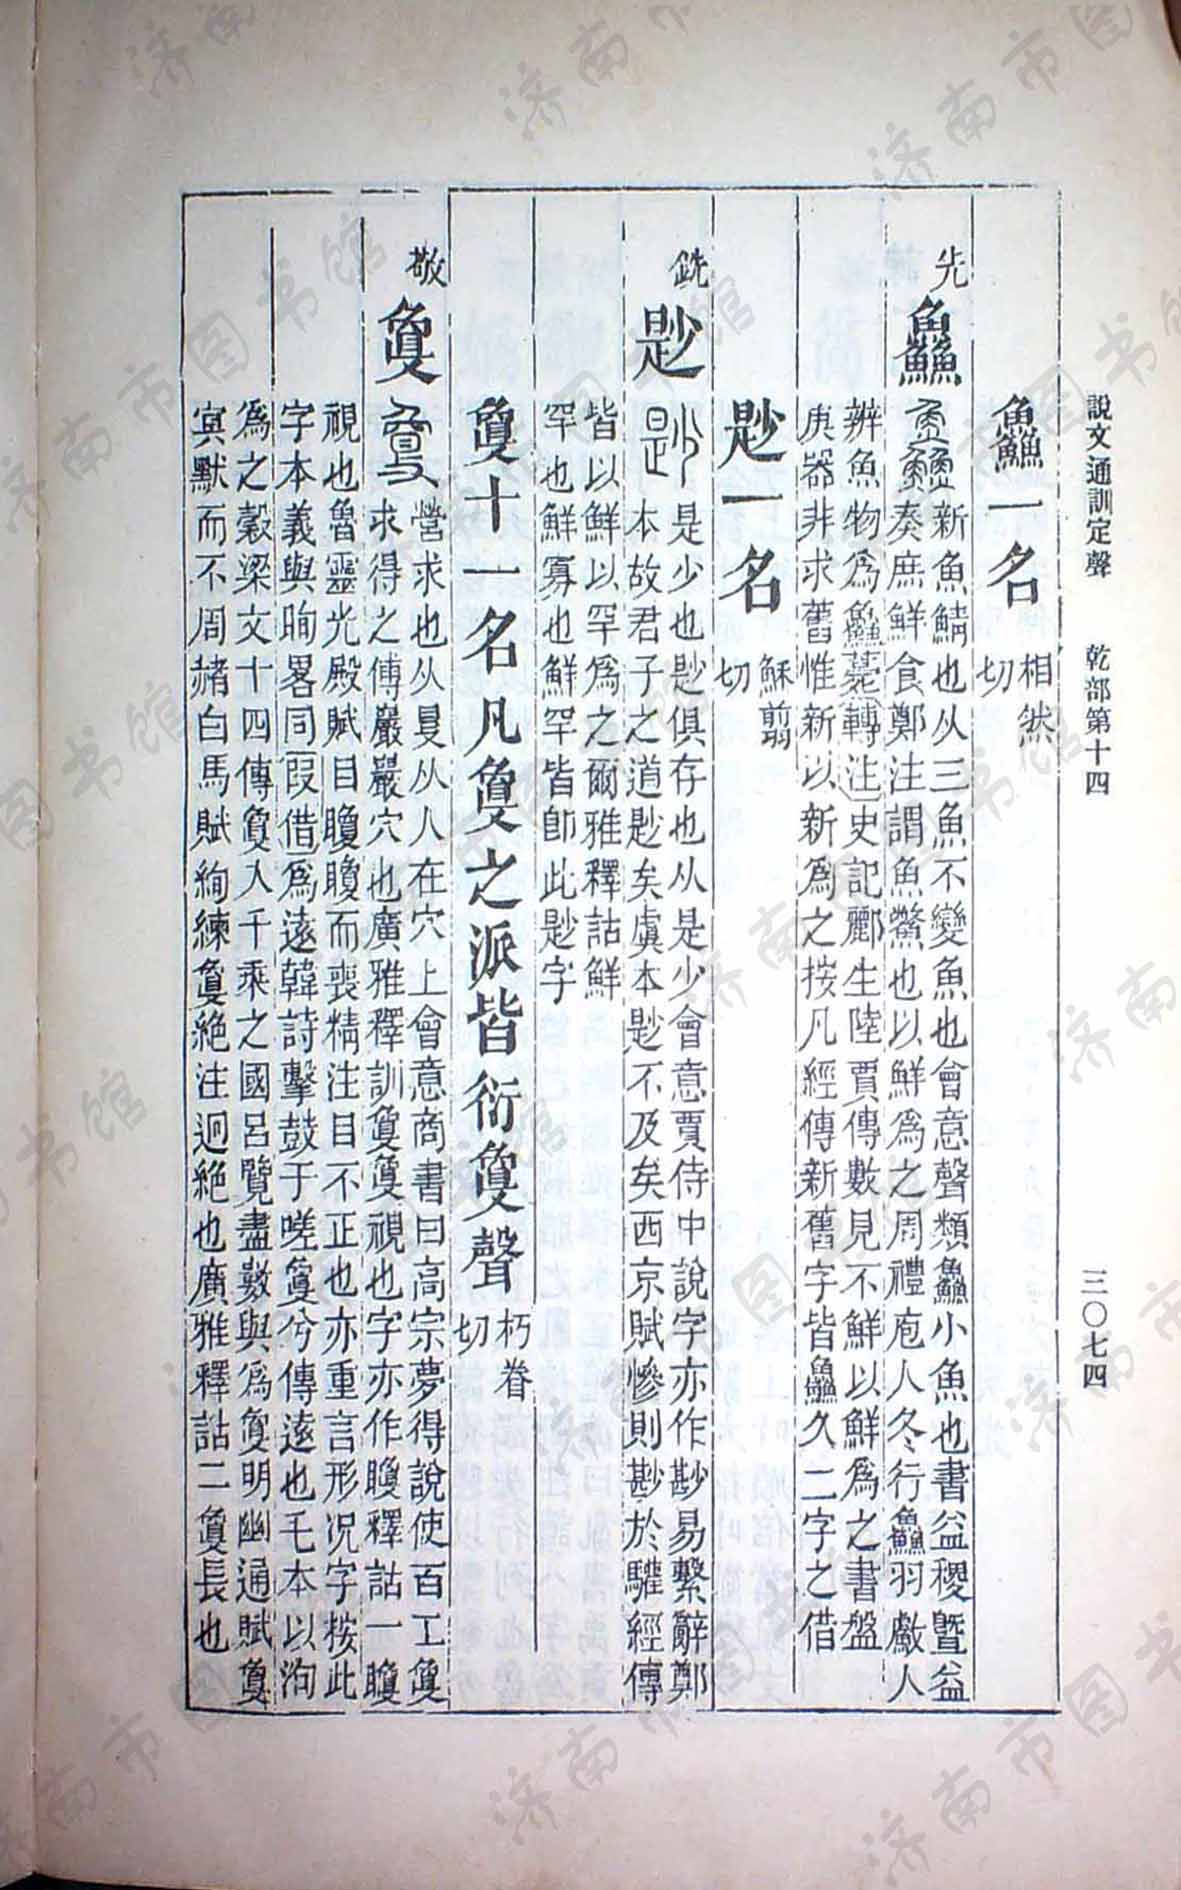 說文通訓定聲　乾部第十四　三〇七四
鱻一名相然
切
先
鱻
新魚鯖也从三魚不變魚也會意聲類鱻小魚也書益稷曁益
奏庶鮮食鄭注謂魚鱉也以鮮爲之周禮庖人冬行鱻羽獻人
辨魚物爲鱻薧轉注史記酈生陸賈傳數見不鮮以鮮爲之書盤
庚器非求舊惟新以新爲之按凡經傳新舊字皆鱻久二字之借
尟一名穌翦
切
銑
尟
是少也尟俱存也从是少會意賈侍中說字亦作尠易繫辭鄭
本故君子之道尟矣虞本尟不及矣西京賦慘則尠於驩經傳
皆以鮮以罕爲之爾雅釋詁鮮
罕也鮮寡也鮮罕皆卽此尟字
敻十一名凡敻之派皆衍敻聲朽眷
切
敬
敻
營求也从𥄎从人在穴上會意商書曰高宗夢得說使百工敻
求得之傅巖巖穴也廣雅釋訓敻敻視也字亦作矎釋詁一矎
視也魯靈光殿賦目矎矎而喪精注目不正也亦重言形況字按此
字本義與眴畧同叚借爲遠韓詩擊鼓于嗟敻兮傳遠也毛本以洵
爲之穀梁文十四傳敻入千乘之國呂覽盡數與爲敻明幽通賦敻
冥默而不周赭白馬賦絢練敻絶注迥絶也廣雅釋詁二敻長也